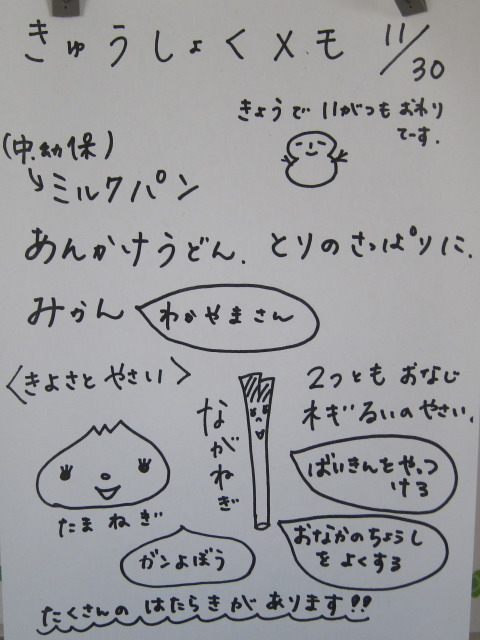 きゅうしょくメモ 11/30
きょうで11がつもおわり
でーす.
(中.幼保)
ミルクパン
あんかけうどん. とりのさっぱりに.
みかん わかやまさん
<きよさと やさい>
ながねぎ
2つとも おなじ
ネギるいのやさい.
たまねぎ
ばいきんをやっつ
ける
おなかのちょうし
を よくする
ガンよぼう
たくさんの はたらきが あります!!